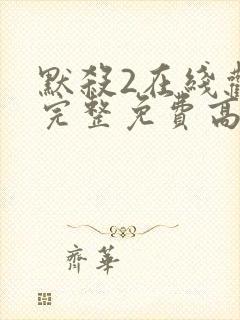 默殺2在綫
完整免費高
齊華